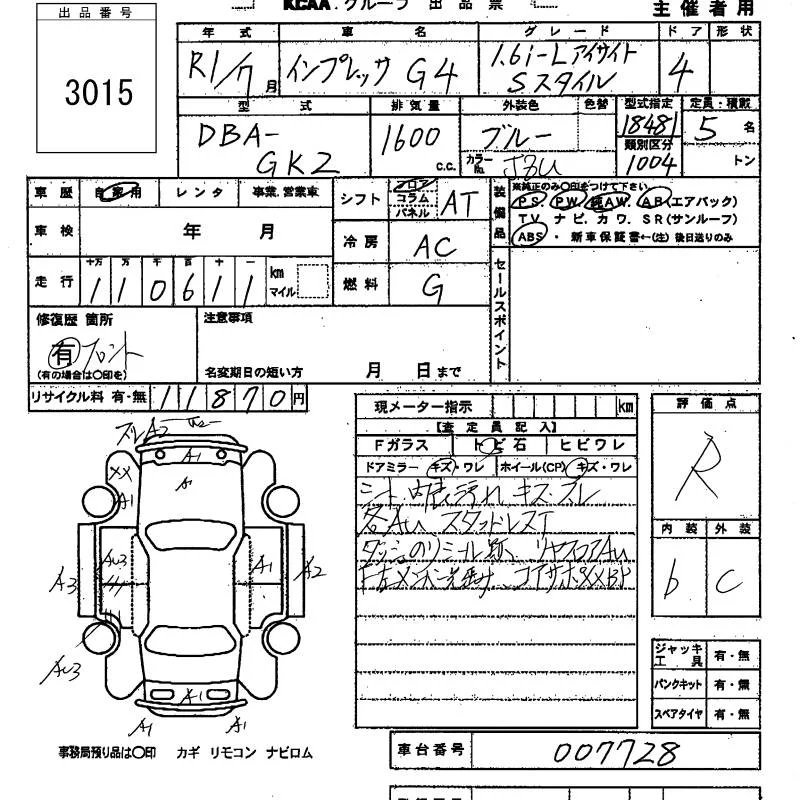 KCAA グループ 出 品 票
主催者用
出品番号
3015
年式 車名 グレード ドア 形状
R1/7月 インプレッサ G4 1.6i-L アイサイト Sスタイル 4
型式 排気量 外装色 色替 型式指定 定員・積載
DBA-GK2 1600 c.c. ブルー 18481 5名
カラーNo. 類別区分 1004 トン
車歴 自家用 レンタ 事業.営業車
車検 年 月
走行 十万 万 千 百 十 一
110611 km マイル
シフト フロア コラム パネル AT
冷房 AC
燃料 G
装備品 ※純正のみ〇印をつけて下さい
PS PW 純AW. AB(エアバック)
TV ナビ.カワ.SR(サンルーフ)
ABS ・ 新車保証書←(注)後日送りのみ
セールスポイント
修復歴 箇所
有 フロント
(有の場合は〇印を)
注意事項
名変期日の短い方 月 日まで
リサイクル料 有・無 11870円
現メーター指示 km
【査定員記入】
Fガラス トビ石 ヒビワレ
ドアミラー キズ・ワレ ホイール(CP) キズ・ワレ
評価点
R
内装 外装
b C
ジャッキ 工具 有・無
パンクキット 有・無
スペアタイヤ 有・無
A2
A1
A1
XX
A1
A3
A1
A2
A1
A1
事務局預り品は〇印 カギ リモコン ナビロム
車台番号 007728